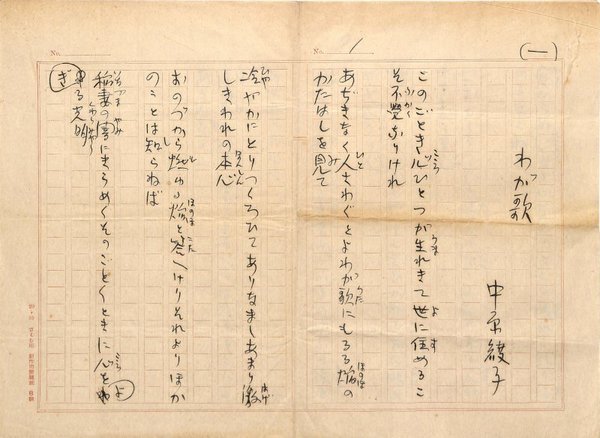 (一)
No. 1
わが歌
中原綾子
このごとき心ひとつが生れきて世に住めるこ
そ不覚なりけれ
あぢきなく人さわぐとよわが歌にもるる焔の
かたはしを見て
冷やかにとりつくろひてありなましあまり激
しきわれの本心
おのづから燃ゆる焔と答へけりそれよりほか
のことは知らねば
稲妻の闇にきらめくそのごとくときに心を
よぎる光明
No.